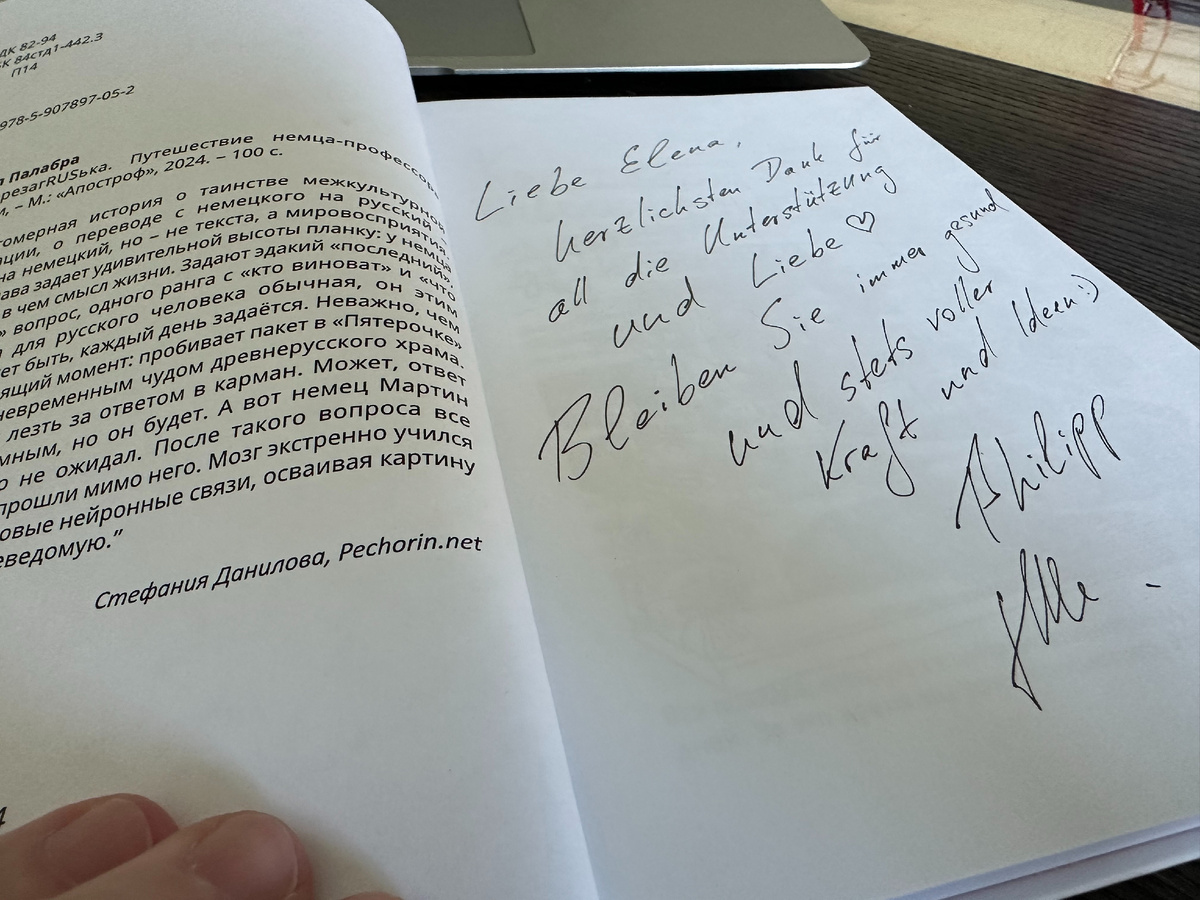 ДК 82-94
К 84стд1-442.3
П14
978-5-907897-05-2
Палабра
резагRUSька. Путешествие немца-профессора
– М.: «Апостроф», 2024. – 100 с.
омерная история о таинстве межкультурной
ации, о переводе с немецкого на русский –
на немецкий, но – не текста, а мировосприятия.
ава задает удивительной высоты планку: у немца
в чем смысл жизни. Задают эдакий «последний»,
» вопрос, одного ранга с «кто виноват» и «что
для русского человека обычная, он этим
ет быть, каждый день задаётся. Неважно, чем
ящий момент: пробивает пакет в «Пятерочке»
невременным чудом древнерусского храма.
лезть за ответом в карман. Может, ответ
мным, но он будет. А вот немец Мартин
о не ожидал. После такого вопроса все
прошли мимо него. Мозг экстренно учился
овые нейронные связи, осваивая картину
еведомую.”
Стефания Данилова, Pechorin.net
4
Liebe Elena,
herzlichsten Dank für
all die Unterstützung
und Liebe ♡
Bleiben Sie immer gesund
und stets voller
Kraft und Ideen :)
Philipp